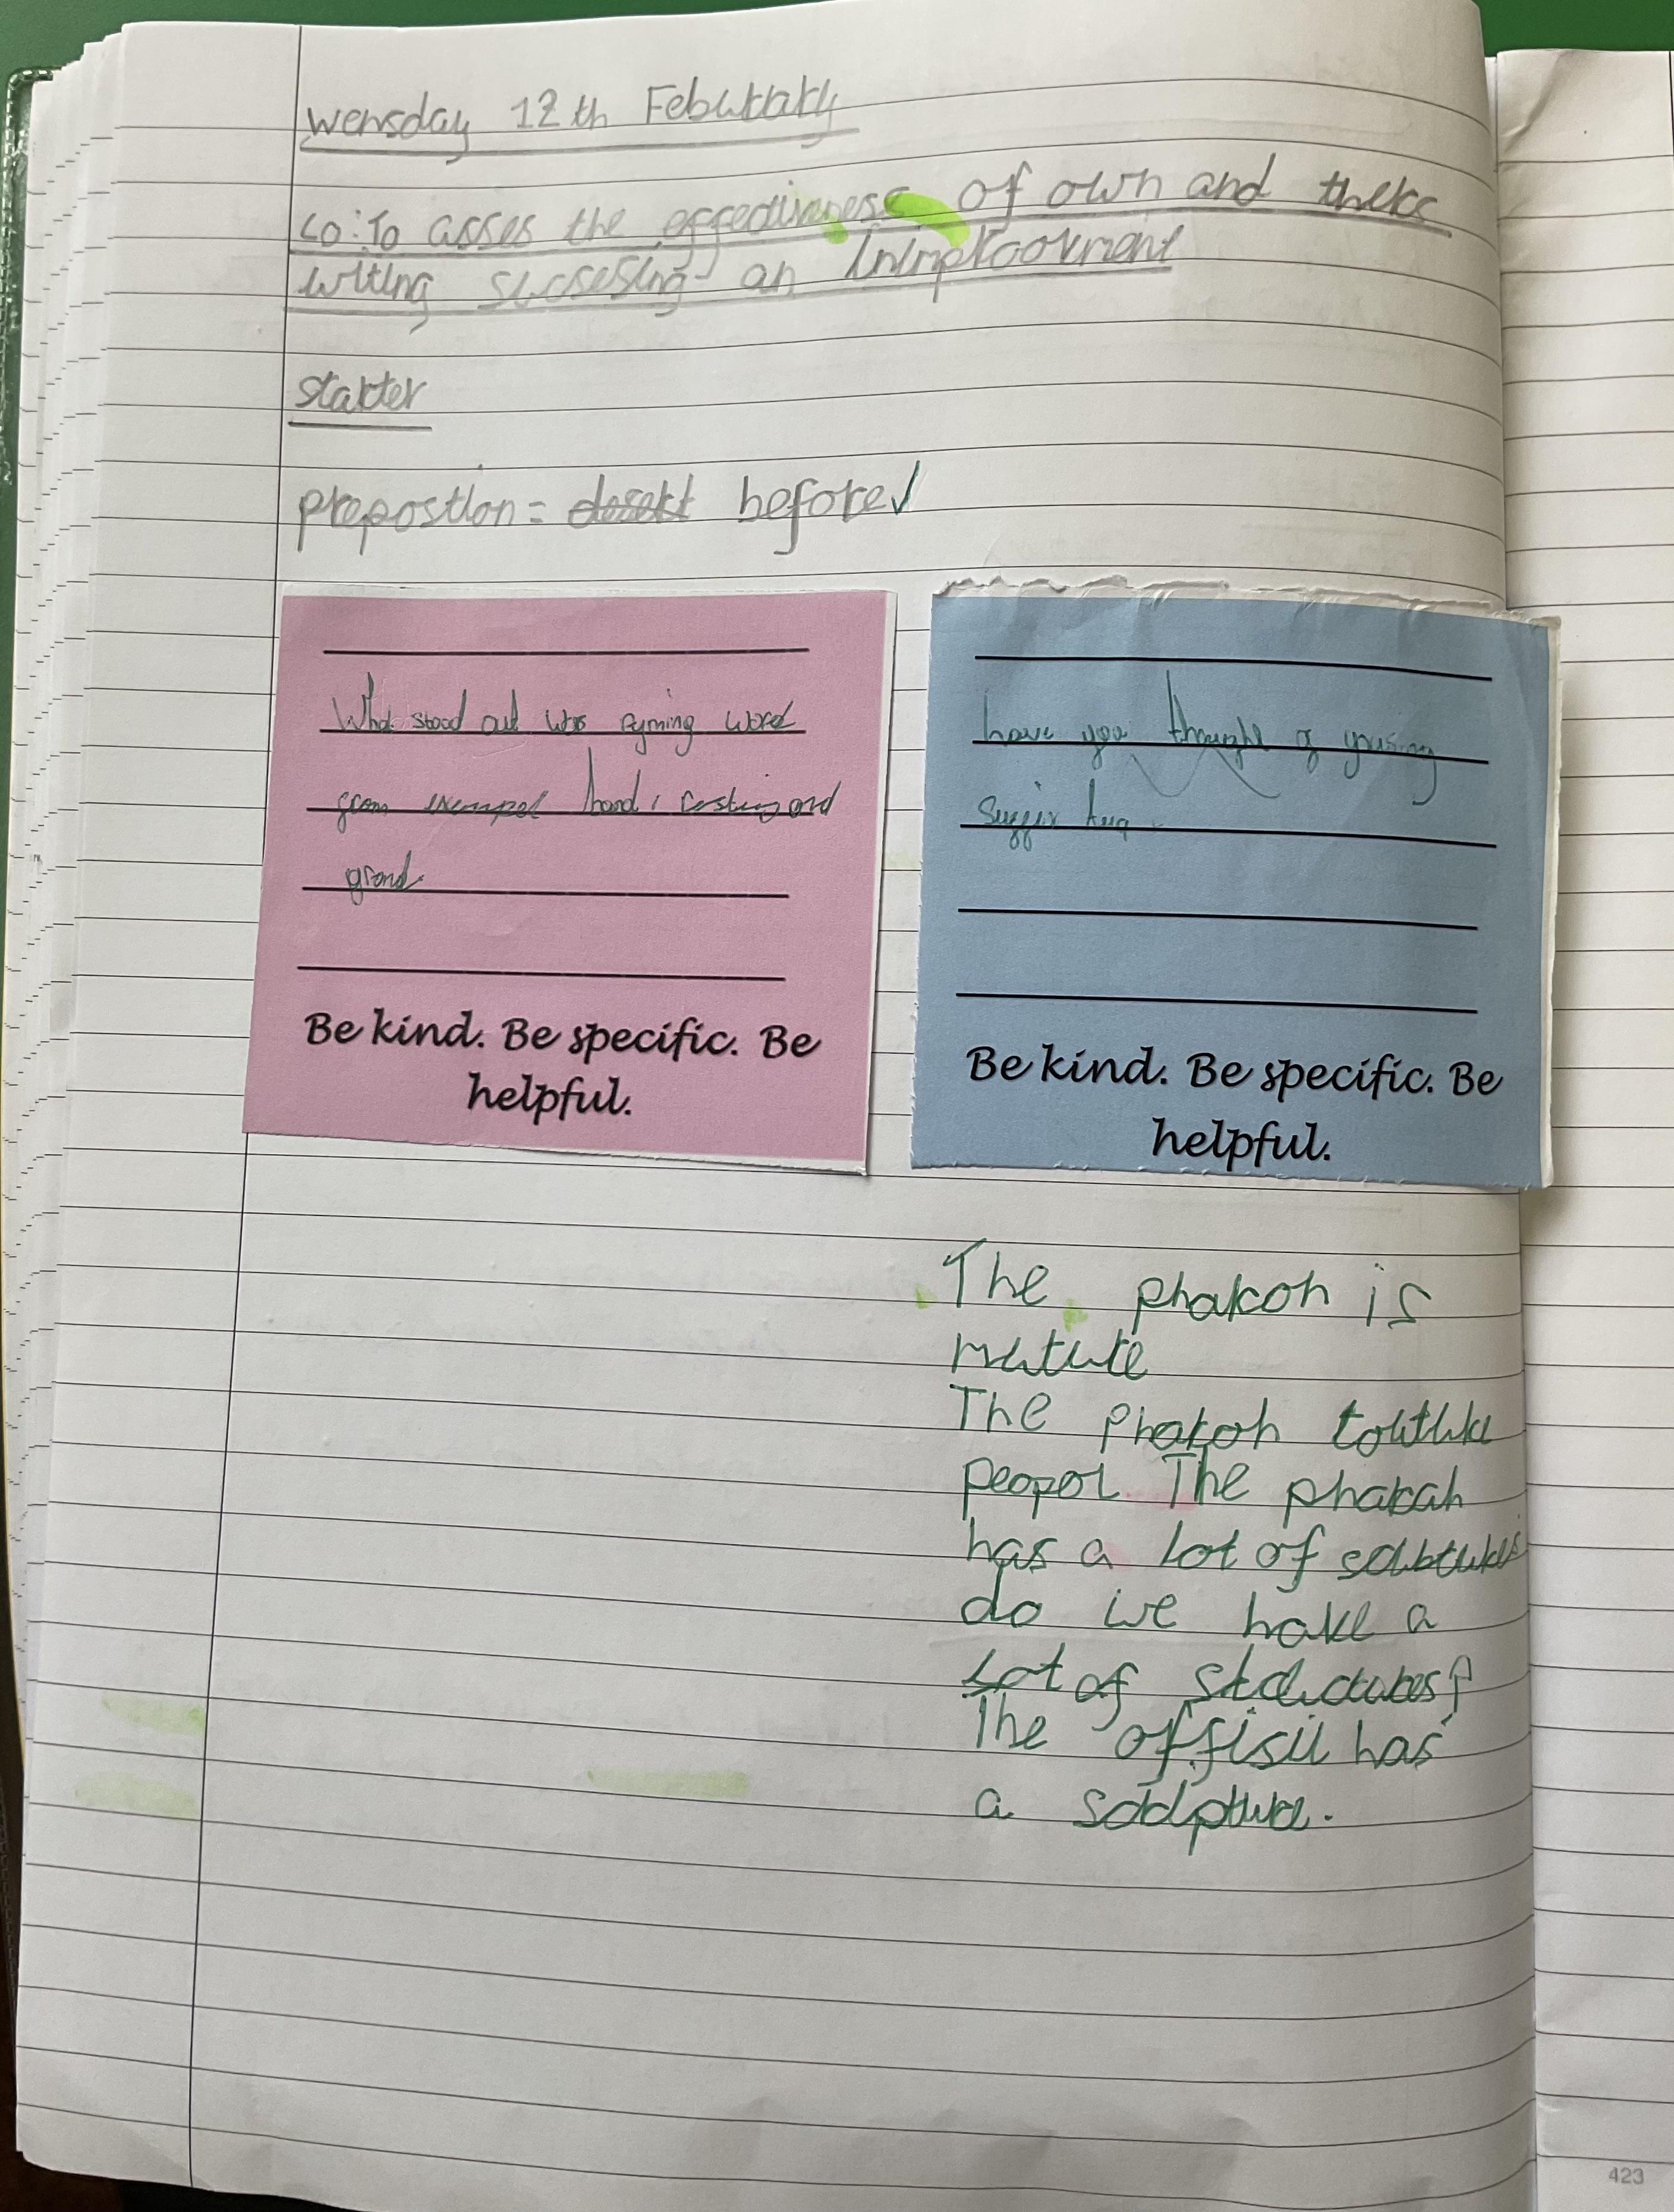 wensday 12th Feburary
Lo: To asses the effectivness of own and thers
writing sucsesing an inimproovment
starter
prepostion = desert before ✓
What stood out was ryming word
from exempel hand, resting and
grand.
Be kind. Be specific. Be
helpful.
have you thought of yusing
suffix
Be kind. Be specific. Be
helpful.
The pharoh is
mature
The Pharoh
peopol. The pharah
has a lot of
do we have a
Lot of
The offisil has
a
423